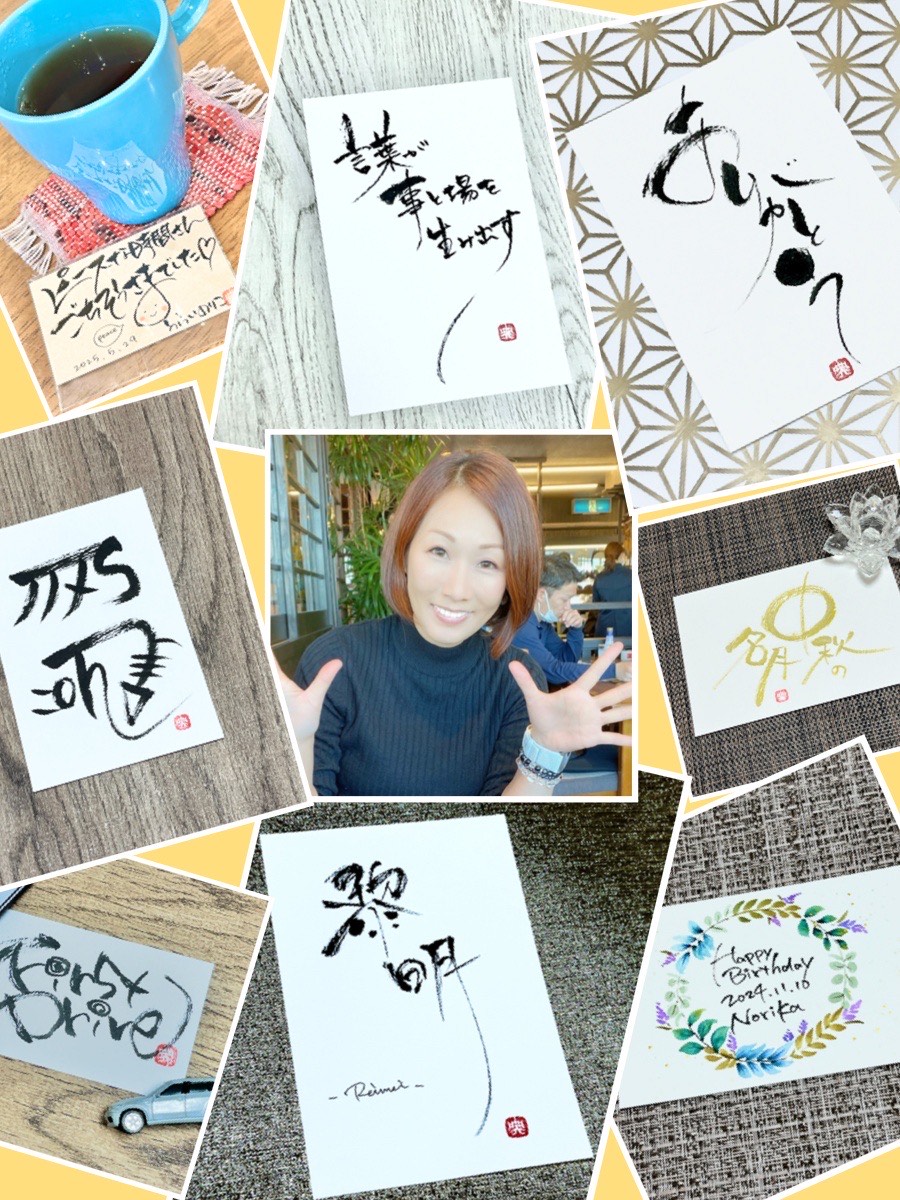 ピースな時間さん
ごちそうさまでした♡
peace
2025.5.29
言葉が
事と場を
生み出す
ありがとう
中秋の
名月
First
Drive
黎
明
- Reimei -
Happy
Birthday
2024.11.10
Norika